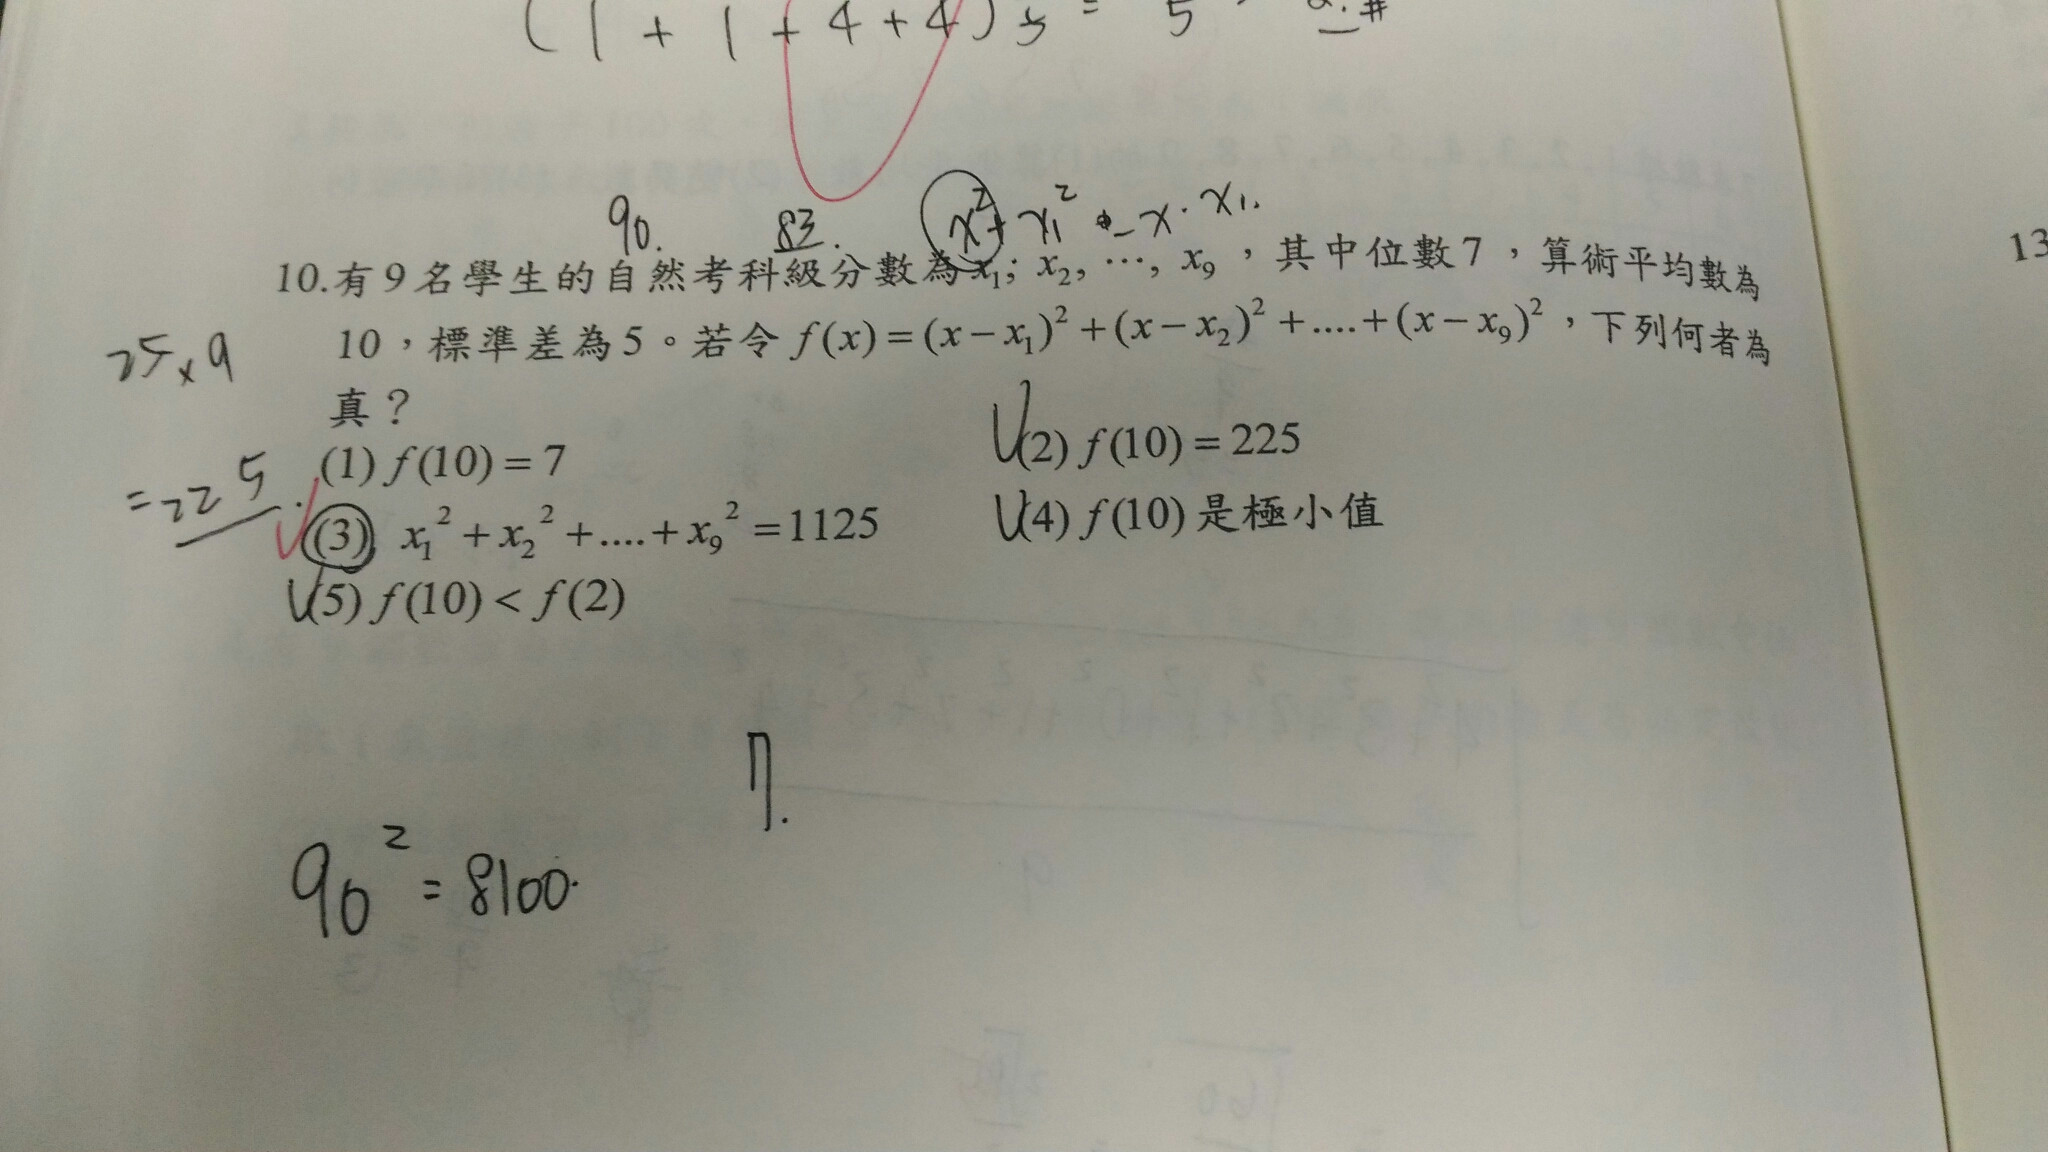 (1+1+4+4) 5 = 5
90. 83. x²+x₁² - x·x₁.
10.有9名學生的自然考科級分數為x₁; x₂, ⋯, x₉，其中位數7，算術平均數為
25×9
10，標準差為5。若令f(x)=(x-x₁)²+(x-x₂)²+....+(x-x₉)²，下列何者為
真？
(1) f(10)=7 (2) f(10)=225
=225
(3) x₁²+x₂²+....+x₉²=1125 (4) f(10)是極小值
(5) f(10)<f(2)
7.
90²=8100.
13